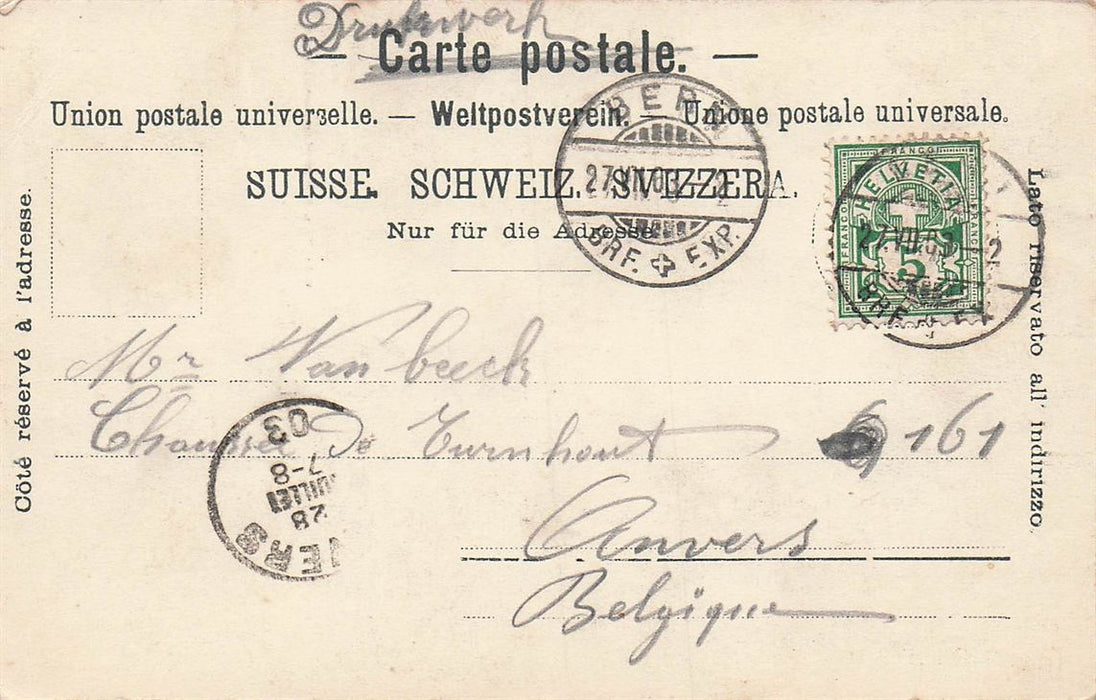 Drukwerk
— Carte postale. —
Union postale universelle. — Weltpostverein. — Unione postale universale.
SUISSE. SCHWEIZ. SVIZZERA.
Nur für die Adresse.
Côté réservé à l'adresse.
Lato riservato all' indirizzo.
BERN
27.VII.03.–2
BRF. EXP.
FRANCO
HELVETIA
5
27.VII.03.–2
BRF. EX
Mr Van beeck
Chaussée de Turnhout 161
Anvers
Belgique
03
7-8
JUILLET
28
VERS